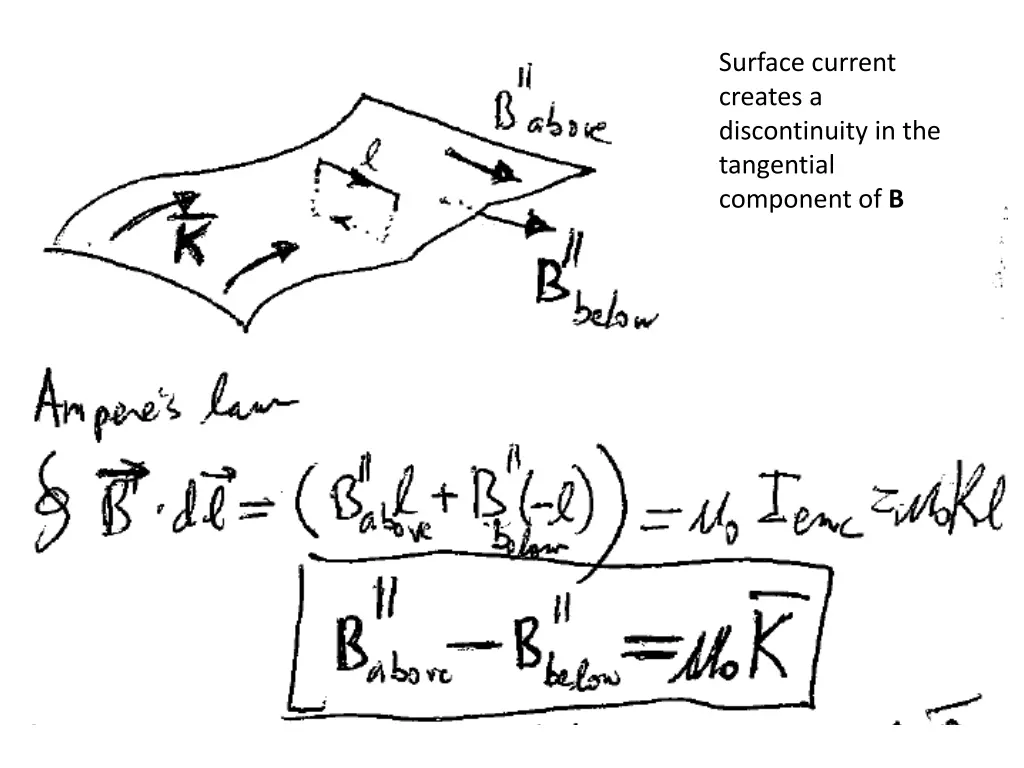 Surface current
creates a
discontinuity in the
tangential
component of B
B∥above
l
K̅
B∥below
Ampere's law
∮ B⃗ · dl⃗ = (B∥above l + B∥below (-l)) = μ₀ Ienc = μ₀Kl
B∥above − B∥below = μ₀ K̅